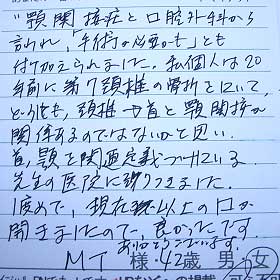 "顎関接症と口腔外科から
言われ、「手術が必要かも」とも
付け加えられました。私個人は20
年前に第7頚椎の骨折をしていて、
どうしても、頚椎→首と顎関接が
関係あるのではないかと思い
首、顎を関連定義づけている
先生の医院に辿りつきました。
1度めで、現在以上の口が
開きましたので、良かったです。
ありがとうございます。
M T 様・42歳 男・女